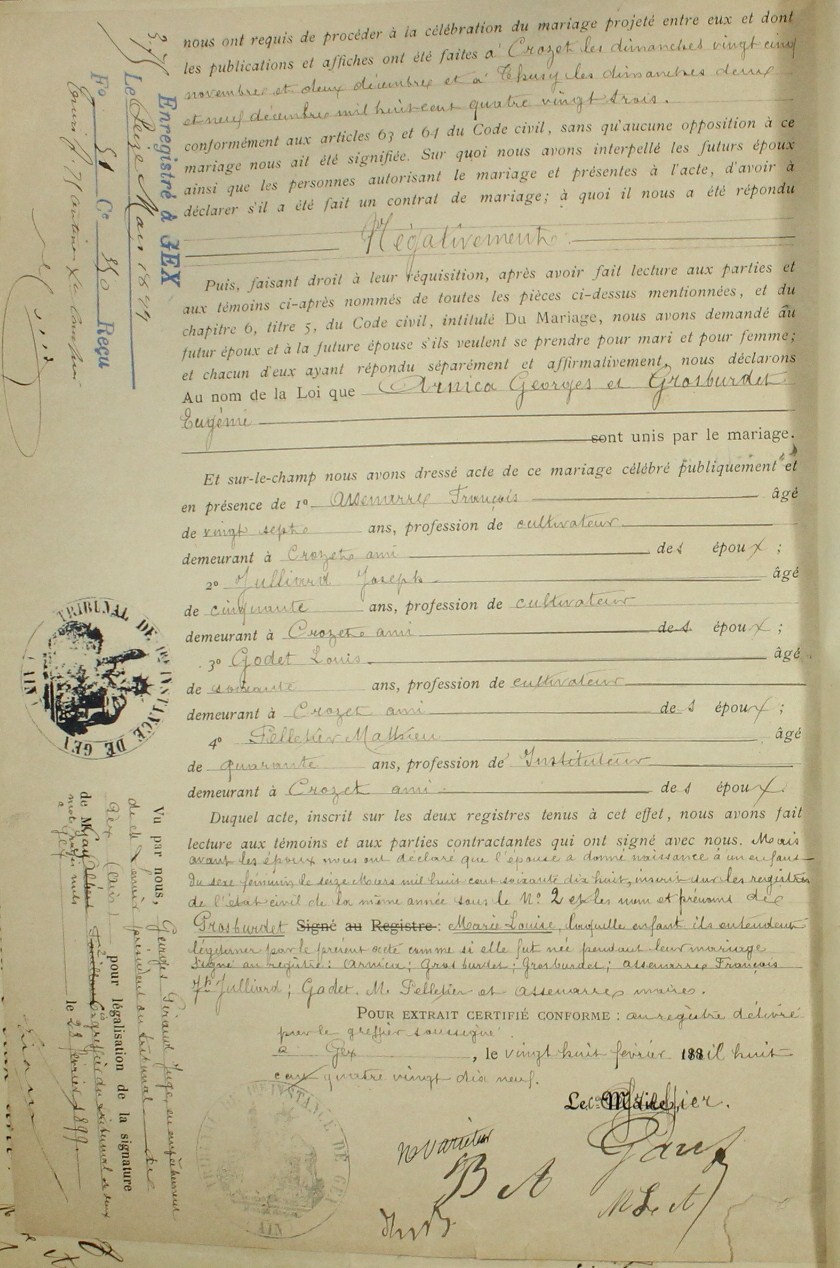 nous ont requis de procéder à la célébration du mariage projeté entre eux et dont
les publications et affiches ont été faites à Crozet les dimanches vingt cinq
novembre et deux décembre et à Thusy les dimanches deux
et neuf décembre mil huit cent quatre vingt trois.
conformément aux articles 63 et 64 du Code civil, sans qu'aucune opposition à ce
mariage nous ait été signifiée. Sur quoi nous avons interpellé les futurs époux
ainsi que les personnes autorisant le mariage et présentes à l'acte, d'avoir à
déclarer s'il a été fait un contrat de mariage; à quoi il nous a été répondu
Négativement
Puis, faisant droit à leur réquisition, après avoir fait lecture aux parties et
aux témoins ci-après nommés de toutes les pièces ci-dessus mentionnées, et du
chapitre 6, titre 5, du Code civil, intitulé Du Mariage, nous avons demandé au
futur époux et à la future épouse s'ils veulent se prendre pour mari et pour femme;
et chacun d'eux ayant répondu séparément et affirmativement, nous déclarons
Au nom de la Loi que Arnica Georges et Grosburdet
Eugénie
sont unis par le mariage.
Et sur-le-champ nous avons dressé acte de ce mariage célébré publiquement et
en présence de 1º Assemarre François âgé
de vingt sept ans, profession de cultivateur
demeurant à Crozet ami des époux ;
2º Julliard Joseph âgé
de cinquante ans, profession de cultivateur
demeurant à Crozet ami des époux ;
3º Godet Louis âgé
de soixante ans, profession de cultivateur
demeurant à Crozet ami des époux ;
4º Pelletier Mathieu âgé
de quarante ans, profession de Instituteur
demeurant à Crozet ami des époux.
Duquel acte, inscrit sur les deux registres tenus à cet effet, nous avons fait
lecture aux témoins et aux parties contractantes qui ont signé avec nous. Mais
avant les époux nous ont déclaré que l'épouse a donné naissance à un enfant
du sexe féminin le seize Mars mil huit cent soixante dix huit, inscrit sur les registres
de l'état civil de la même année sous le Nº 2 et les nom et prénoms de
Grosburdet Signé au Registre : Marie Louise, laquelle enfant ils entendent
légitimer par le présent acte comme si elle fut née pendant leur mariage
Signé au registre : Arnica; Grosburdet; Grosburdet; Assemarre François
Jh Julliard; Gadet. M. Pelletier et Assemarre maire.
POUR EXTRAIT CERTIFIÉ CONFORME : au registre délivré
par le greffier soussigné
à Gex, le vingt huit fevrier 188 il huit
cent quatre vingt dix neuf.
Le Greffier.
Ne varietur
B A
M L A
Enregistré à GEX
Le seize Mars 1899
Fº 51 Cº 350 Reçu
TRIBUNAL DE 1re INSTANCE DE GEX
(AIN)
Vu par nous, Georges Giraud Juge
président du tribunal de
Gex (Ain) pour légalisation de la signature
de M
le 28 février 1899
TRIBUNAL DE 1re INSTANCE DE GEX
AIN